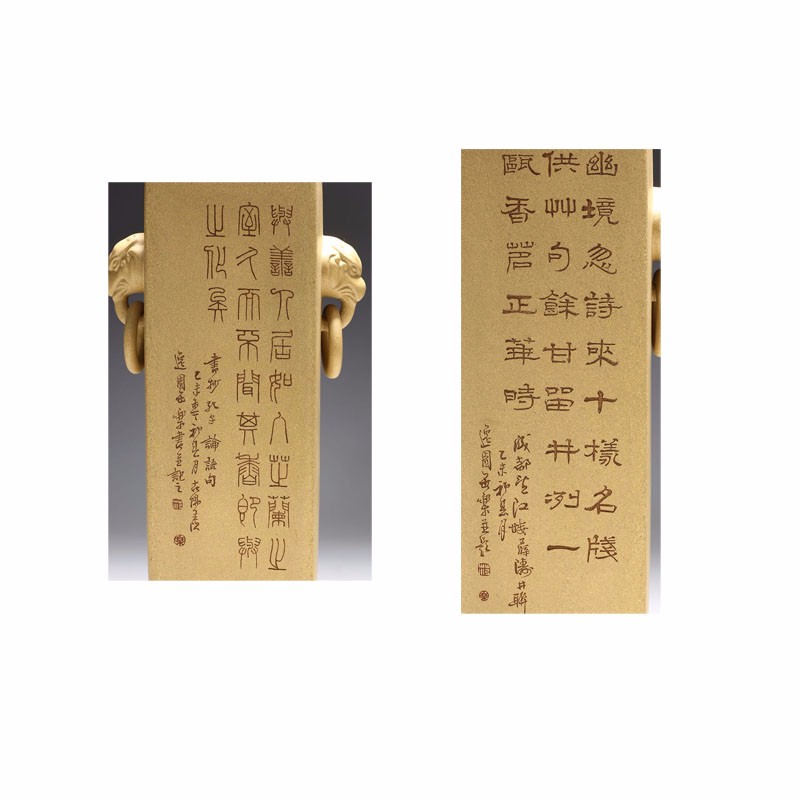 與善人居如入芝蘭之
室久而不聞其香即與
之化矣
書抄孔子論語句
乙未初月
逸園樂書並記之
幽境忽詩來十樣名牋
供艸句餘甘留井冽一
甌香茗正華時
成都望江樓薛濤井聯
乙未初月
逸園樂並題